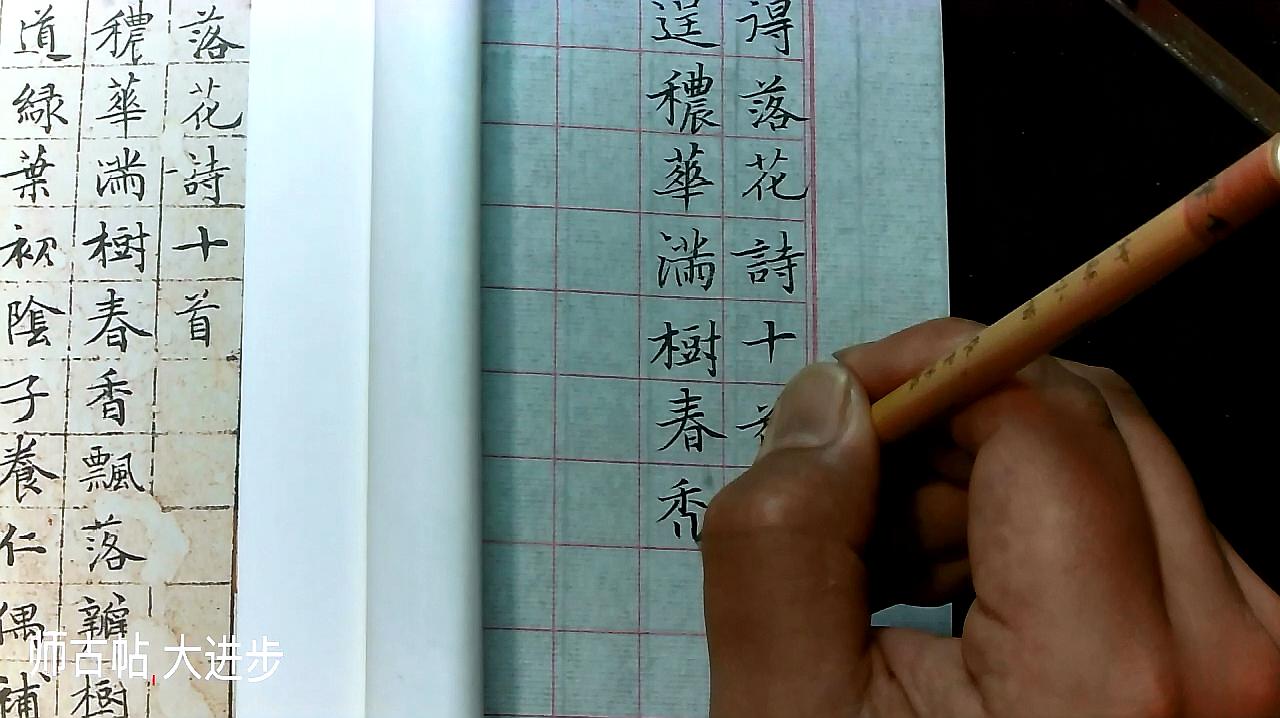 得落花詩十
逞穠華滿樹春
落花詩十首
穠華滿樹春香飄落樹
道緑葉初陰子養仁偶補
师古帖,大进步